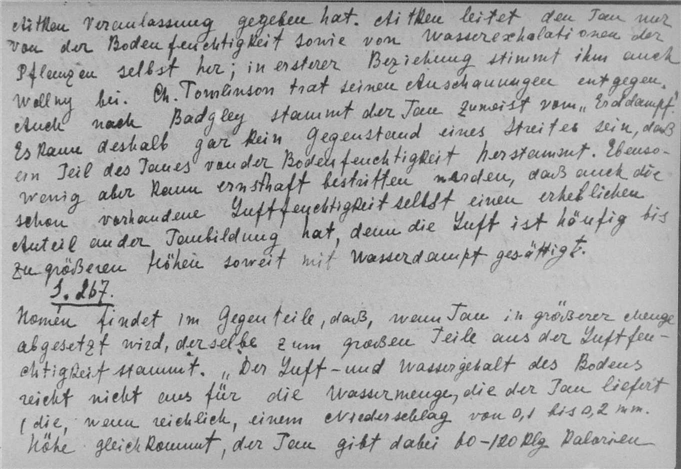 Aitken Veranlassung gegeben hat. Aitken leitet den Tau nur
von der Bodenfeuchtigkeit sowie von Wasserexhalationen der
Pflanzen selbst her; in ersterer Beziehung stimmt ihm auch
Wollny bei. Ch. Tomlinson trat seinen Anschauungen entgegen.
Auch nach Badgley stammt der Tau zumeist vom „Erddampf".
Es kann deshalb gar kein Gegenstand eines Streites sein, daß
ein Teil des Taues von der Bodenfeuchtigkeit herstammt. Ebenso-
wenig aber kann ernsthaft bestritten werden, daß auch die
schon vorhandene Luftfeuchtigkeit selbst einen erheblichen
Anteil an der Taubildung hat, denn die Luft ist häufig bis
zu größeren Höhen soweit mit Wasserdampf gesättigt.
S. 267.
Homén findet im Gegenteile, daß, wenn Tau in größerer Menge
abgesetzt wird, derselbe zum großen Teile aus der Luftfeu-
chtigkeit stammt. „Der Luft- und Wassergehalt des Bodens
reicht nicht aus für die Wassermenge, die der Tau liefert
(die, wenn reichlich, einem Niederschlag von 0,1 bis 0,2 mm.
Höhe gleichkommt, der Tau gibt dabei 60-120 Klg Kalorien